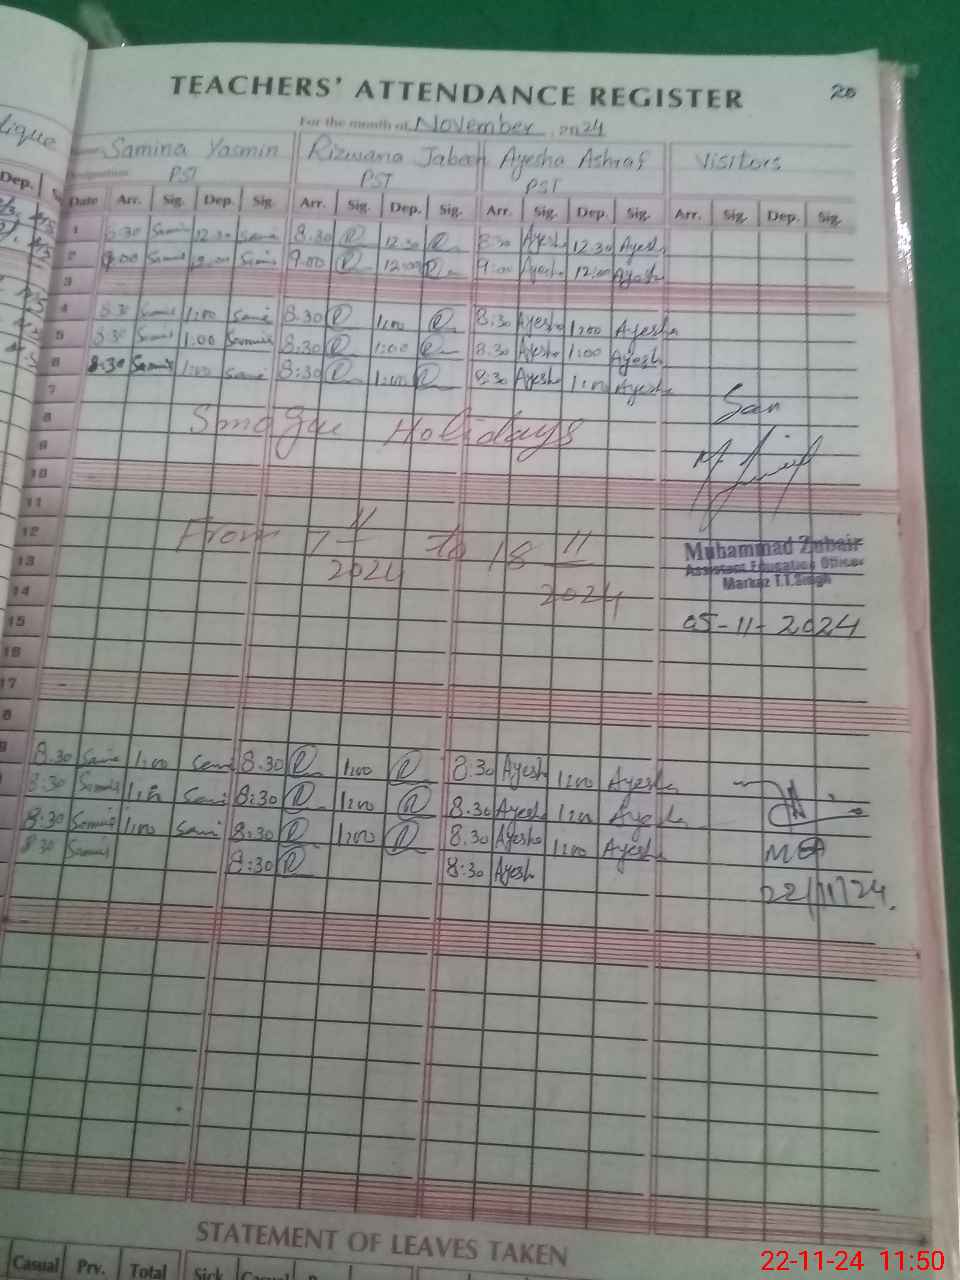 TEACHERS' ATTENDANCE REGISTER 20
For the month of November, 2024
Samina Yasmin Rizwana Jabeen Ayesha Ashraf Visitors
Designation PST PST PST
Date Arr. Sig. Dep. Sig. Arr. Sig. Dep. Sig. Arr. Sig. Dep. Sig. Arr. Sig. Dep. Sig.
1 8.30 Sami 12.30 Sami 8.30 R 12.30 R 8.30 Ayesh 12.30 Ayesh
2 9.00 Samis 12.00 Samis 9.00 R 12:00 R 9:00 Ayesha 12:00 Ayesh
3
4 8.30 Samis 1:00 Sami 8.30 R 1:00 R 8:30 Ayesha 1:00 Ayesha
5 8.30 Samis 1.00 Samis 8:30 R 1:00 R 8.30 Ayesha 1:00 Ayesh
6 8:30 Samis 1:00 Sami 8:30 R 1:00 R 8:30 Ayesh 1:00 Ayesha
7
8 Smogue Holidays
9
10
11
12 From 7 11 2024 to 18 11 2024
13
14
15
16
17
8
Muhammad Zubair
Assistant Education Officer
Markaz T.T.Singh
05-11-2024
9 8.30 Sami 1:00 Sami 8.30 R 1:00 R 8:30 Ayesh 1:00 Ayesha
8:30 Samis 1:00 Sami 8:30 R 1:00 R 8.30 Ayesh 1:00 Ayesh
8:30 Samis 1:00 Sami 8:30 R 1:00 R 8.30 Ayesha 1:00 Ayesh
8:30 Samis 8:30 R 8:30 Ayesh
MEA
22/11/24.
STATEMENT OF LEAVES TAKEN
Casual Prv. Total Sick Casual
22-11-24 11:50